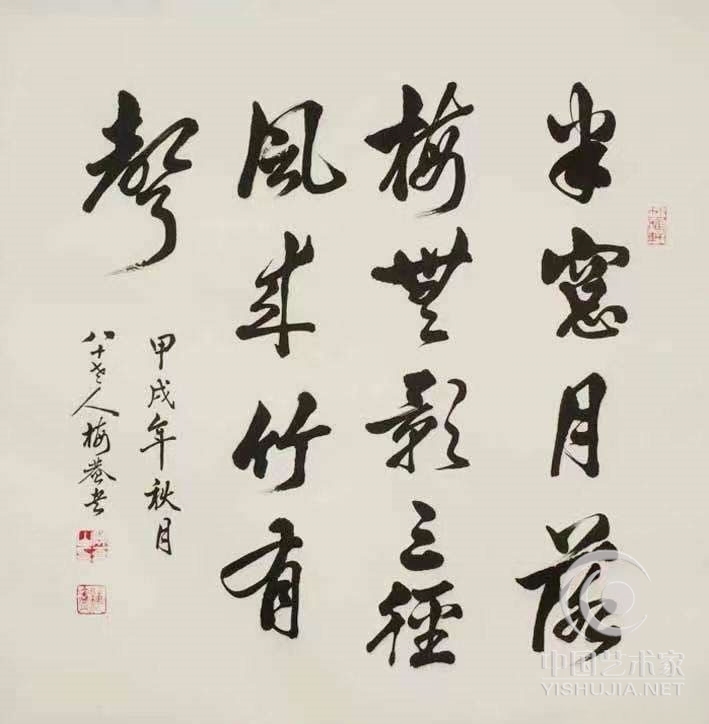 半窓月落
梅無影三徑
風来竹有
聲
甲戌年秋月
八十老人梅菴书
中国艺术家
YISHUJIA.NET